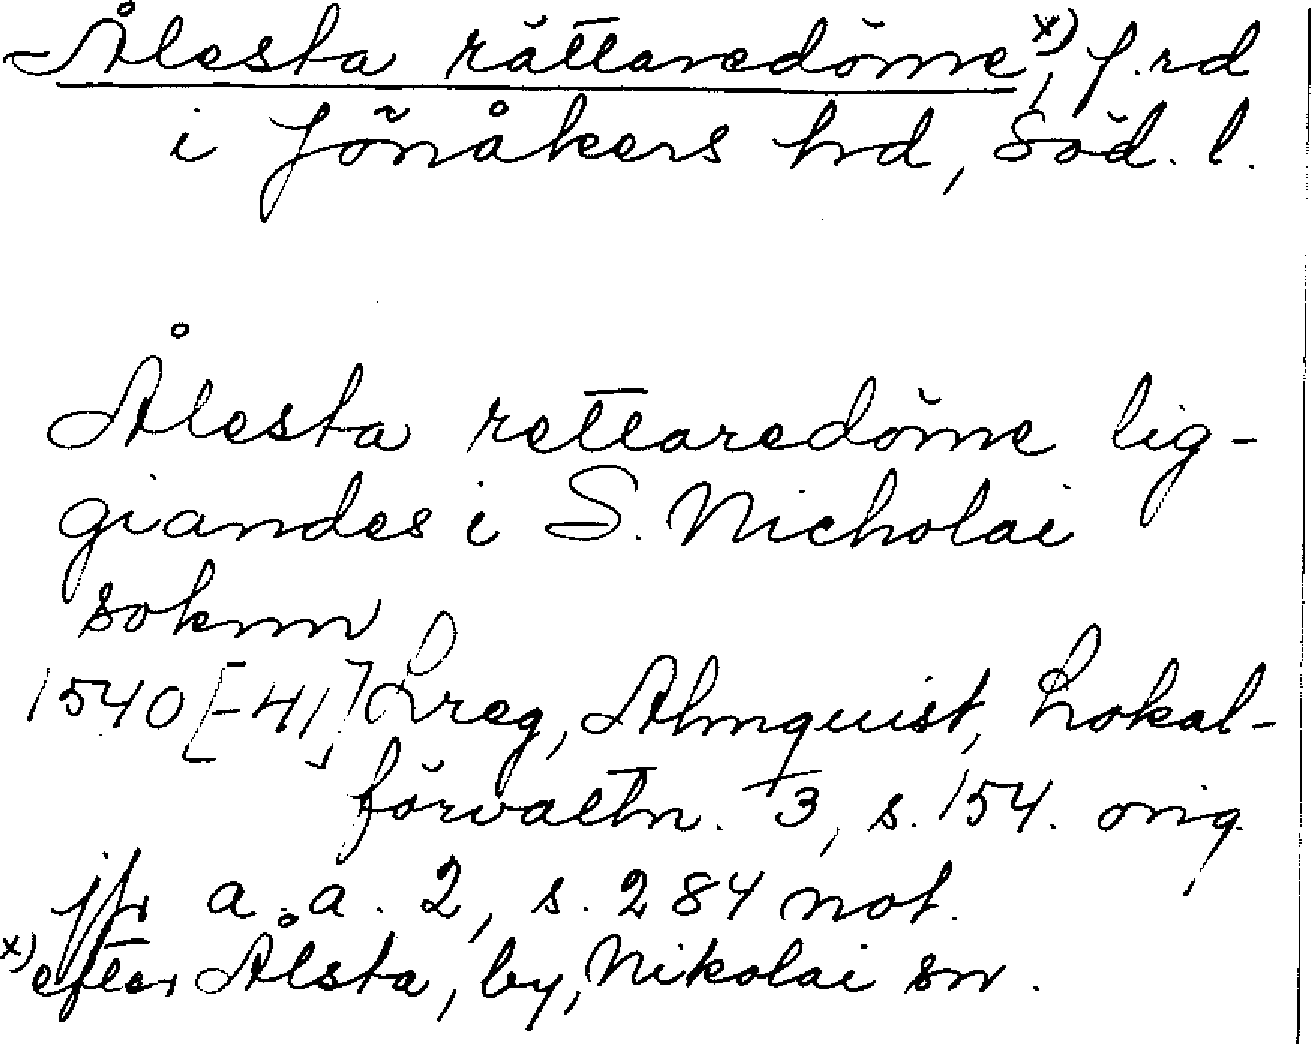 Ålesta rättaredöme x), f.rd
i Jönåkers hd, Söd. l.
Ålesta rettaredöme lig-
giandes i S. Nicholai
soknn
1540[-41] Lreg, Almquist, Lokal-
förvaltn. 3, s. 154. orig.
jfr a.a. 2, s. 284 not.
x) efter Ålsta, by, Nikolai sn.